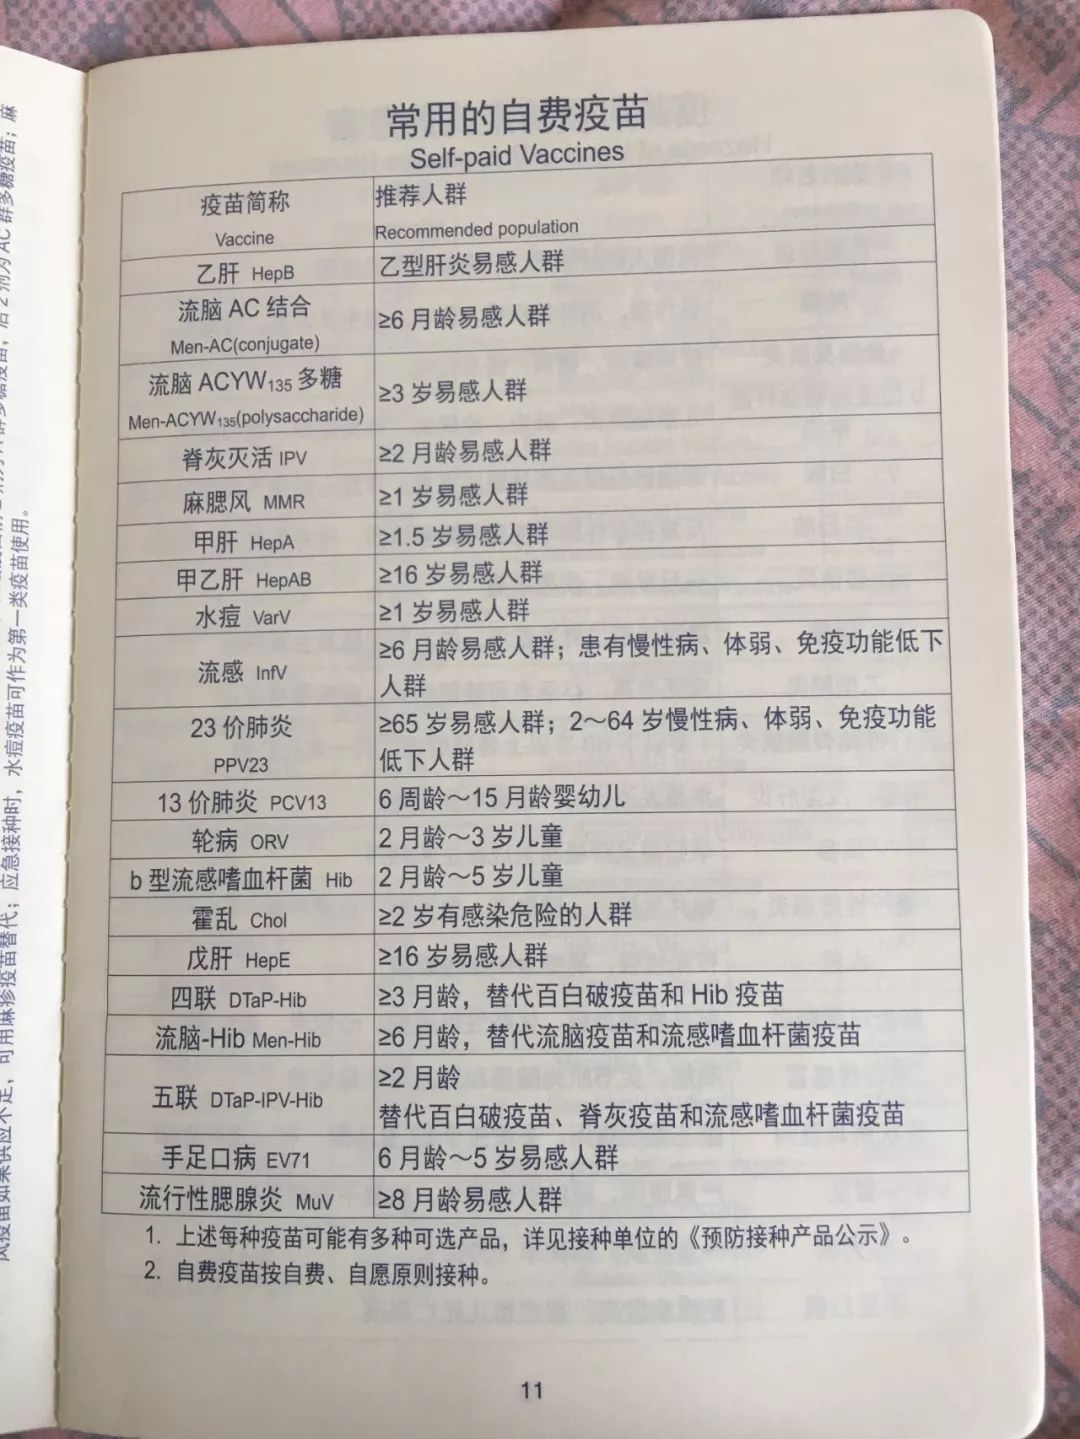 常用的自费疫苗
Self-paid Vaccines
疫苗简称
Vaccine
推荐人群
Recommended population
乙肝 HepB
乙型肝炎易感人群
流脑 AC 结合
Men-AC(conjugate)
≥6 月龄易感人群
流脑 ACYW135 多糖
Men-ACYW135(polysaccharide)
≥3 岁易感人群
脊灰灭活 IPV
≥2 月龄易感人群
麻腮风 MMR
≥1 岁易感人群
甲肝 HepA
≥1.5 岁易感人群
甲乙肝 HepAB
≥16 岁易感人群
水痘 VarV
≥1 岁易感人群
流感 InfV
≥6 月龄易感人群；患有慢性病、体弱、免疫功能低下
人群
23 价肺炎
PPV23
≥65 岁易感人群；2～64 岁慢性病、体弱、免疫功能
低下人群
13 价肺炎 PCV13
6 周龄～15 月龄婴幼儿
轮病 ORV
2 月龄～3 岁儿童
b 型流感嗜血杆菌 Hib
2 月龄～5 岁儿童
霍乱 Chol
≥2 岁有感染危险的人群
戊肝 HepE
≥16 岁易感人群
四联 DTaP-Hib
≥3 月龄，替代百白破疫苗和 Hib 疫苗
流脑-Hib Men-Hib
≥6 月龄，替代流脑疫苗和流感嗜血杆菌疫苗
五联 DTaP-IPV-Hib
≥2 月龄
替代百白破疫苗、脊灰疫苗和流感嗜血杆菌疫苗
手足口病 EV71
6 月龄～5 岁易感人群
流行性腮腺炎 MuV
≥8 月龄易感人群
1. 上述每种疫苗可能有多种可选产品，详见接种单位的《预防接种产品公示》。
2. 自费疫苗按自费、自愿原则接种。
11
风疫苗如果供应不足，可用麻疹疫苗替代；应急接种时，水痘疫苗可作为第一类疫苗使用。